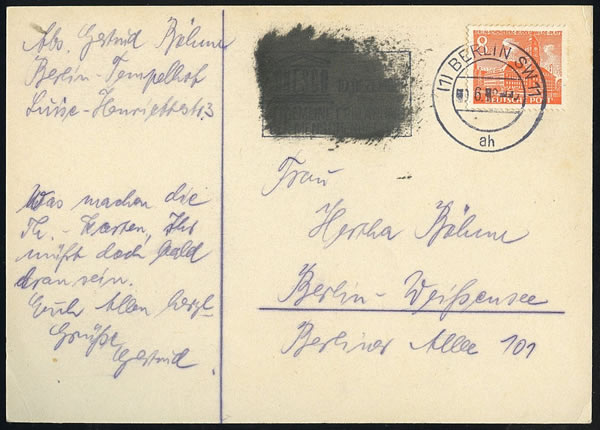 Abs. Gertrud Böhme
Berlin-Tempelhof
Luise-Henriettestr. 3
Was machen die
Th.-Karten, Ihr
müßt doch bald
dran sein.
Euch Allen herzl.
Grüße
Gertrud.
(1) BERLIN SW 11
ah
8
DEUTSCHE POST
Frau
Hertha Böhme
Berlin-Weißensee
Berliner Allee 101